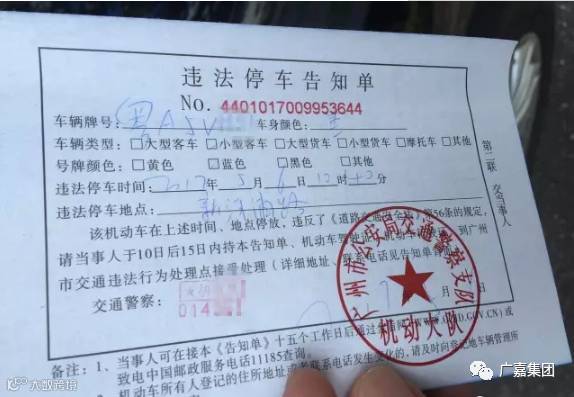 违法停车告知单
No. 4401017009953644
车辆牌号: 粤A5V 车身颜色:
车辆类型: □大型客车 □小型客车 □大型货车 □小型货车 □摩托车 □其他
号牌颜色: □黄色 □蓝色 □黑色 □其他
违法停车时间: 2017年5月6日12时 分
违法停车地点: 新
该机动车在上述时间、地点停放,违反了《道路交通安全法》第56条的规定,
请当事人于10日后15日内持本告知单、机动车驾驶证 机动车 到广州
市交通违法行为处理点接受处理(详细地址、联系电话见告知单背面
交通警察: 014
广州市公安局交通警察支队
机动大队
第二联 交当事人
备注: 1、当事人可在接本《告知单》十五个工作日后通过 .GOV.CN) 或
致电中国邮政服务电话11185查询。
2、机动车所有人登记的住所地址或者联系电话发生变化的,请及时向登记地车辆管理所
大数跨境
广嘉集团